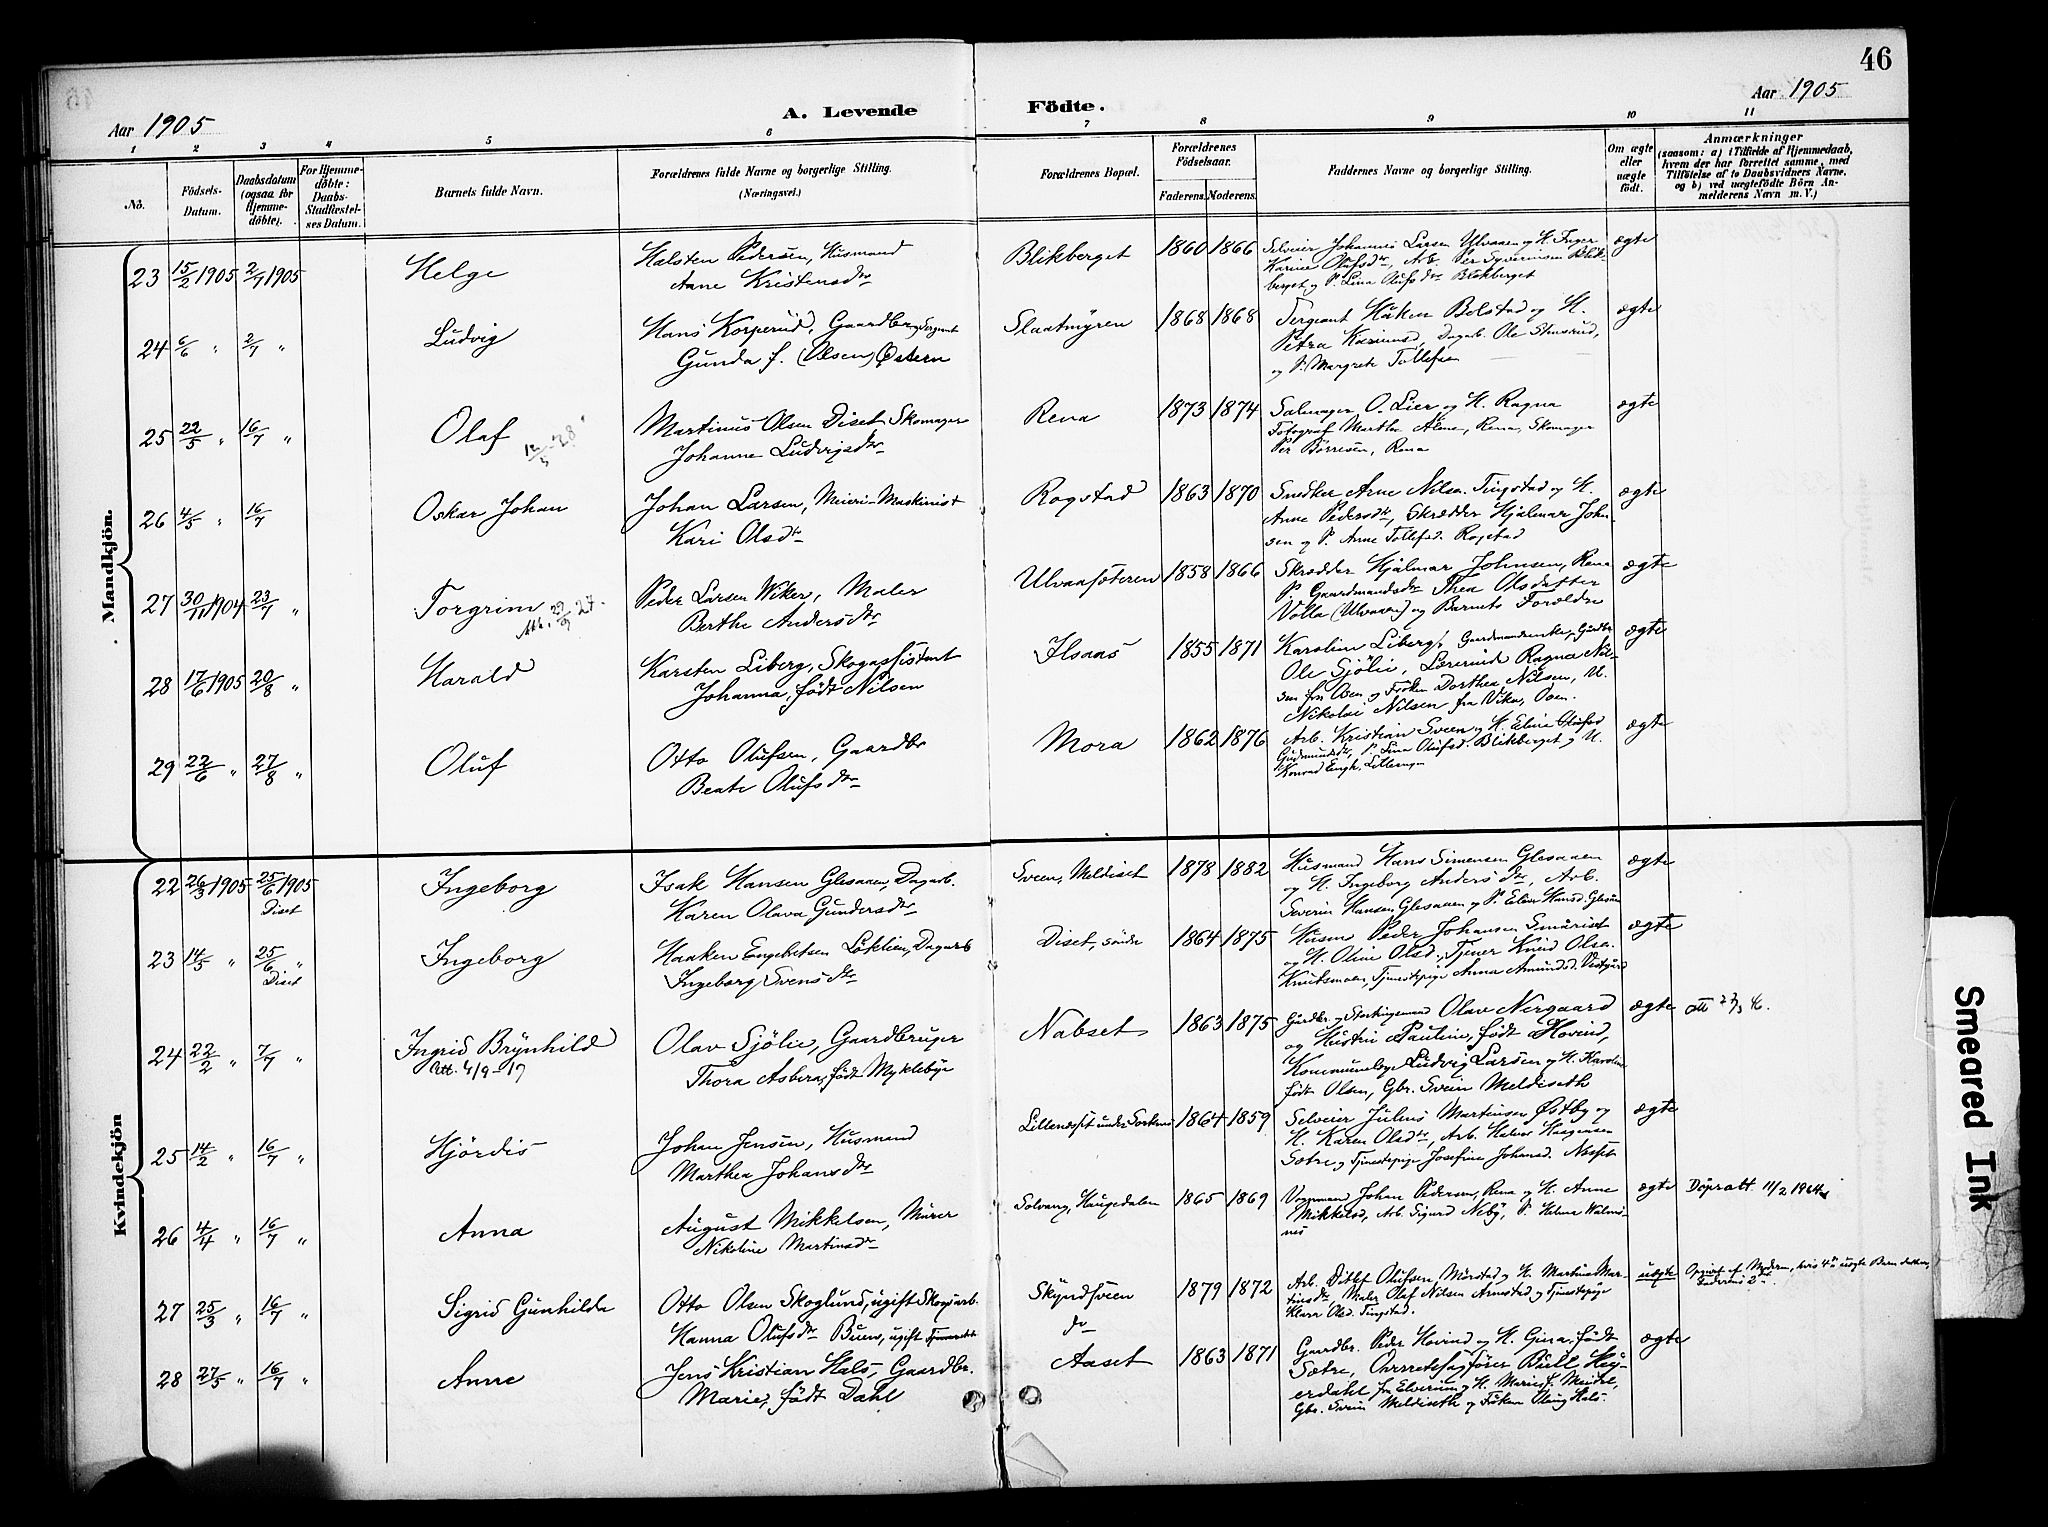 46
Aar 1905
A. Levende Födte.
Aar 1905
1 2 3 4 5 6 7 8 9 10 11
No.
Födsels-Datum.
Daabsdatum (ogsaa for Hjemmedöbte).
For Hjemmedöbte: Daabs-Stadfæstelses Datum.
Barnets fulde Navn.
Forældrenes fulde Navne og borgerlige Stilling. (Næringsvei.)
Forældrenes Bopæl.
Forældrenes Födselsaar.
Faderens. Moderens.
Faddernes Navne og borgerlige Stilling.
Om ægte eller uægte födt.
Anmærkninger
(saasom: a) i Tilfælde af Hjemmedaab, hvem der har forrettet samme, med Tilföielse af to Daabsvidners Navne, og b) ved uægtefödte Börn Anmelderens Navn m. V.)
Mandkjön.
23 15/2 1905 2/7 1905 Helge
Halsten Pedersen, Husmand
Anne Kristensdtr
Blikberget 1860 1866
Selveier Johannes Larsen Ulvaaen og H. Inger
Karine Olufsdtr, Arb. Per Syversinsen Blik-
berget og P. Lina Olufsdtr Blikberget
ægte
24 6/6 " 2/7 " Ludvig
Hans Korperud, Gaardbr. og Sergent
Gunda f. (Olsen) Østern
Slaatmyren 1868 1868
Sergeant Håken Bolstad og H.
Petra , Dagarb. Ole
og P. Margrete Tollefsen
ægte
25 22/5 " 16/7 " Olaf 12/5-28
Martinus Olsen Diset Skomager
Johanne Ludvigsdtr
Rena 1873 1874
Salmager O. Lier og H. Ragna
Fotograf Marthe Alme, Rena, Skomager
Per Börresen, Rena
ægte
26 4/5 " 16/7 Oskar Johan
Johan Larsen, Meieri-Maskinist
Kari Olsdtr
Rogstad 1863 1870
Snedker Arne Nilsen Tingstad og H.
Anne Pedersdtr, Skrædder Hjalmar John-
sen og P. Anne Tollefsd. Rogstad
ægte
27 30/11 1904 23/7 " Torgrim Att. 29/9 27.
Peder Larsen Wiker, Maler
Berthe Andersdtr
Ulvaasæteren 1858 1866
Skrædder Hjalmar Johnsen, Rena
P. Gaardmandsdtr Thea Olsdatter
Volla (Ulvaaen) og Barnets Forældre
ægte
28 17/6 1905 20/8 " Harald
Karsten Liberg, Skogassistent
Johanna, født Nilsen
Ilsaas 1855 1871
Karoline Liberg, Gaardmandsenke, Gardbr.
Ole Sjölie, Lærerinde Ragna Nil-
sen fra Osen og Frøken Dorthea Nilsen, U.
Nikolai Nilsen fra Vika, Osen.
ægte
29 22/6 " 27/8 " Oluf
Otto Olufsen, Gaardbr
Beate Olufsdtr
Mora 1862 1876
Arb. Kristian Sveen og H. Eline Olufsd
Gudmundsdtr, P. Lina Olufsd. Blikberget og U.
Konrad Engh,
ægte
Kvindekjön
22 26/3 1905 25/6 1905 Diset Ingeborg
Isak Hansen Glesaaen, Dagarb.
Karen Olava Gundersdtr
Sveen, Meldiset 1878 1882
Husmand Hans Simensen Glesaaen
og H. Ingeborg Andersdtr, Arb.
Severin Hansen Glesaaen og P. Eline Hansd. Glesåen
ægte
23 14/5 " 25/6 " Diset Ingeborg
Haaken Engebretsen Löklien, Dagarb
Ingeborg Svensdtr
Diset, søndr 1864 1875
Husm Peder Johansen Småriset
og H. Oline Olsd., Tjener Knud Olsen
Knutsmoen, Tjenestepige Anna Amundsd. Vestgård
ægte
24 22/2 " 7/7 " Ingrid Brynhild
Att. 4/9-17
Olav Sjölie, Gaardbruger
Thora Asbera, født Myklebye
Nabset 1863 1875
Gårdbr. og Olav Nergaard
og Hustru Pauline, født Hovind,
Ludvig Larsen og H. Karoline
født Olsen, Gbr. Svein Meldiseth
ægte
25 14/2 " 16/7 " Hjördis
Johan Jensen, Husmand
Marthea Johansdtr
Lillenæsset under 1864 1859
Selveier Julius Martinsen Østby og
H. Karen Olsdtr, Arb. Halvor Haagensen
Sætre og Tjenestepige Josefine Johansd. Næsset
ægte
26 4/4 " 16/7 " Anna
August Mikkelsen, Murer
Nikoline Martinsdtr
Solvang, Haugedalen 1865 1869
Vognmand Johan Pedersen, Rena og H. Anne
Mikkelsd, Arb. Sigurd Neby, P. Helena
ægte Döpsatt. 11/2 1964
27 25/3 " 16/7 " Sigrid Gunhilde
Otto Olsen Skoglund, ugift Skogsarb.
Hanna Olufsdtr Buen, ugift
Skyndsveen 1879 1872
dtr
Arb. Ditlef Olufsen, Mörstad og H. Martine Mar-
tinsdtr, Maler Olaf Nilsen Arnestad og Tjenestepige
Klara Olsd. Tingstad.
uægte
28 27/5 " 16/7 " Anne
Jens Kristian Hals, Gaardbr.
Marie, født Dahl
Aaset 1863 1871
Gaardbr. Peder Hovind og H. Gina, født
Sætre, Overretssagfører Bull Hey-
erdahl fra Elverum og H. Marie f. Meidel,
Gbr. Svein Meldiseth og Frøken Olaug Hals.
ægte
Smeared Ink